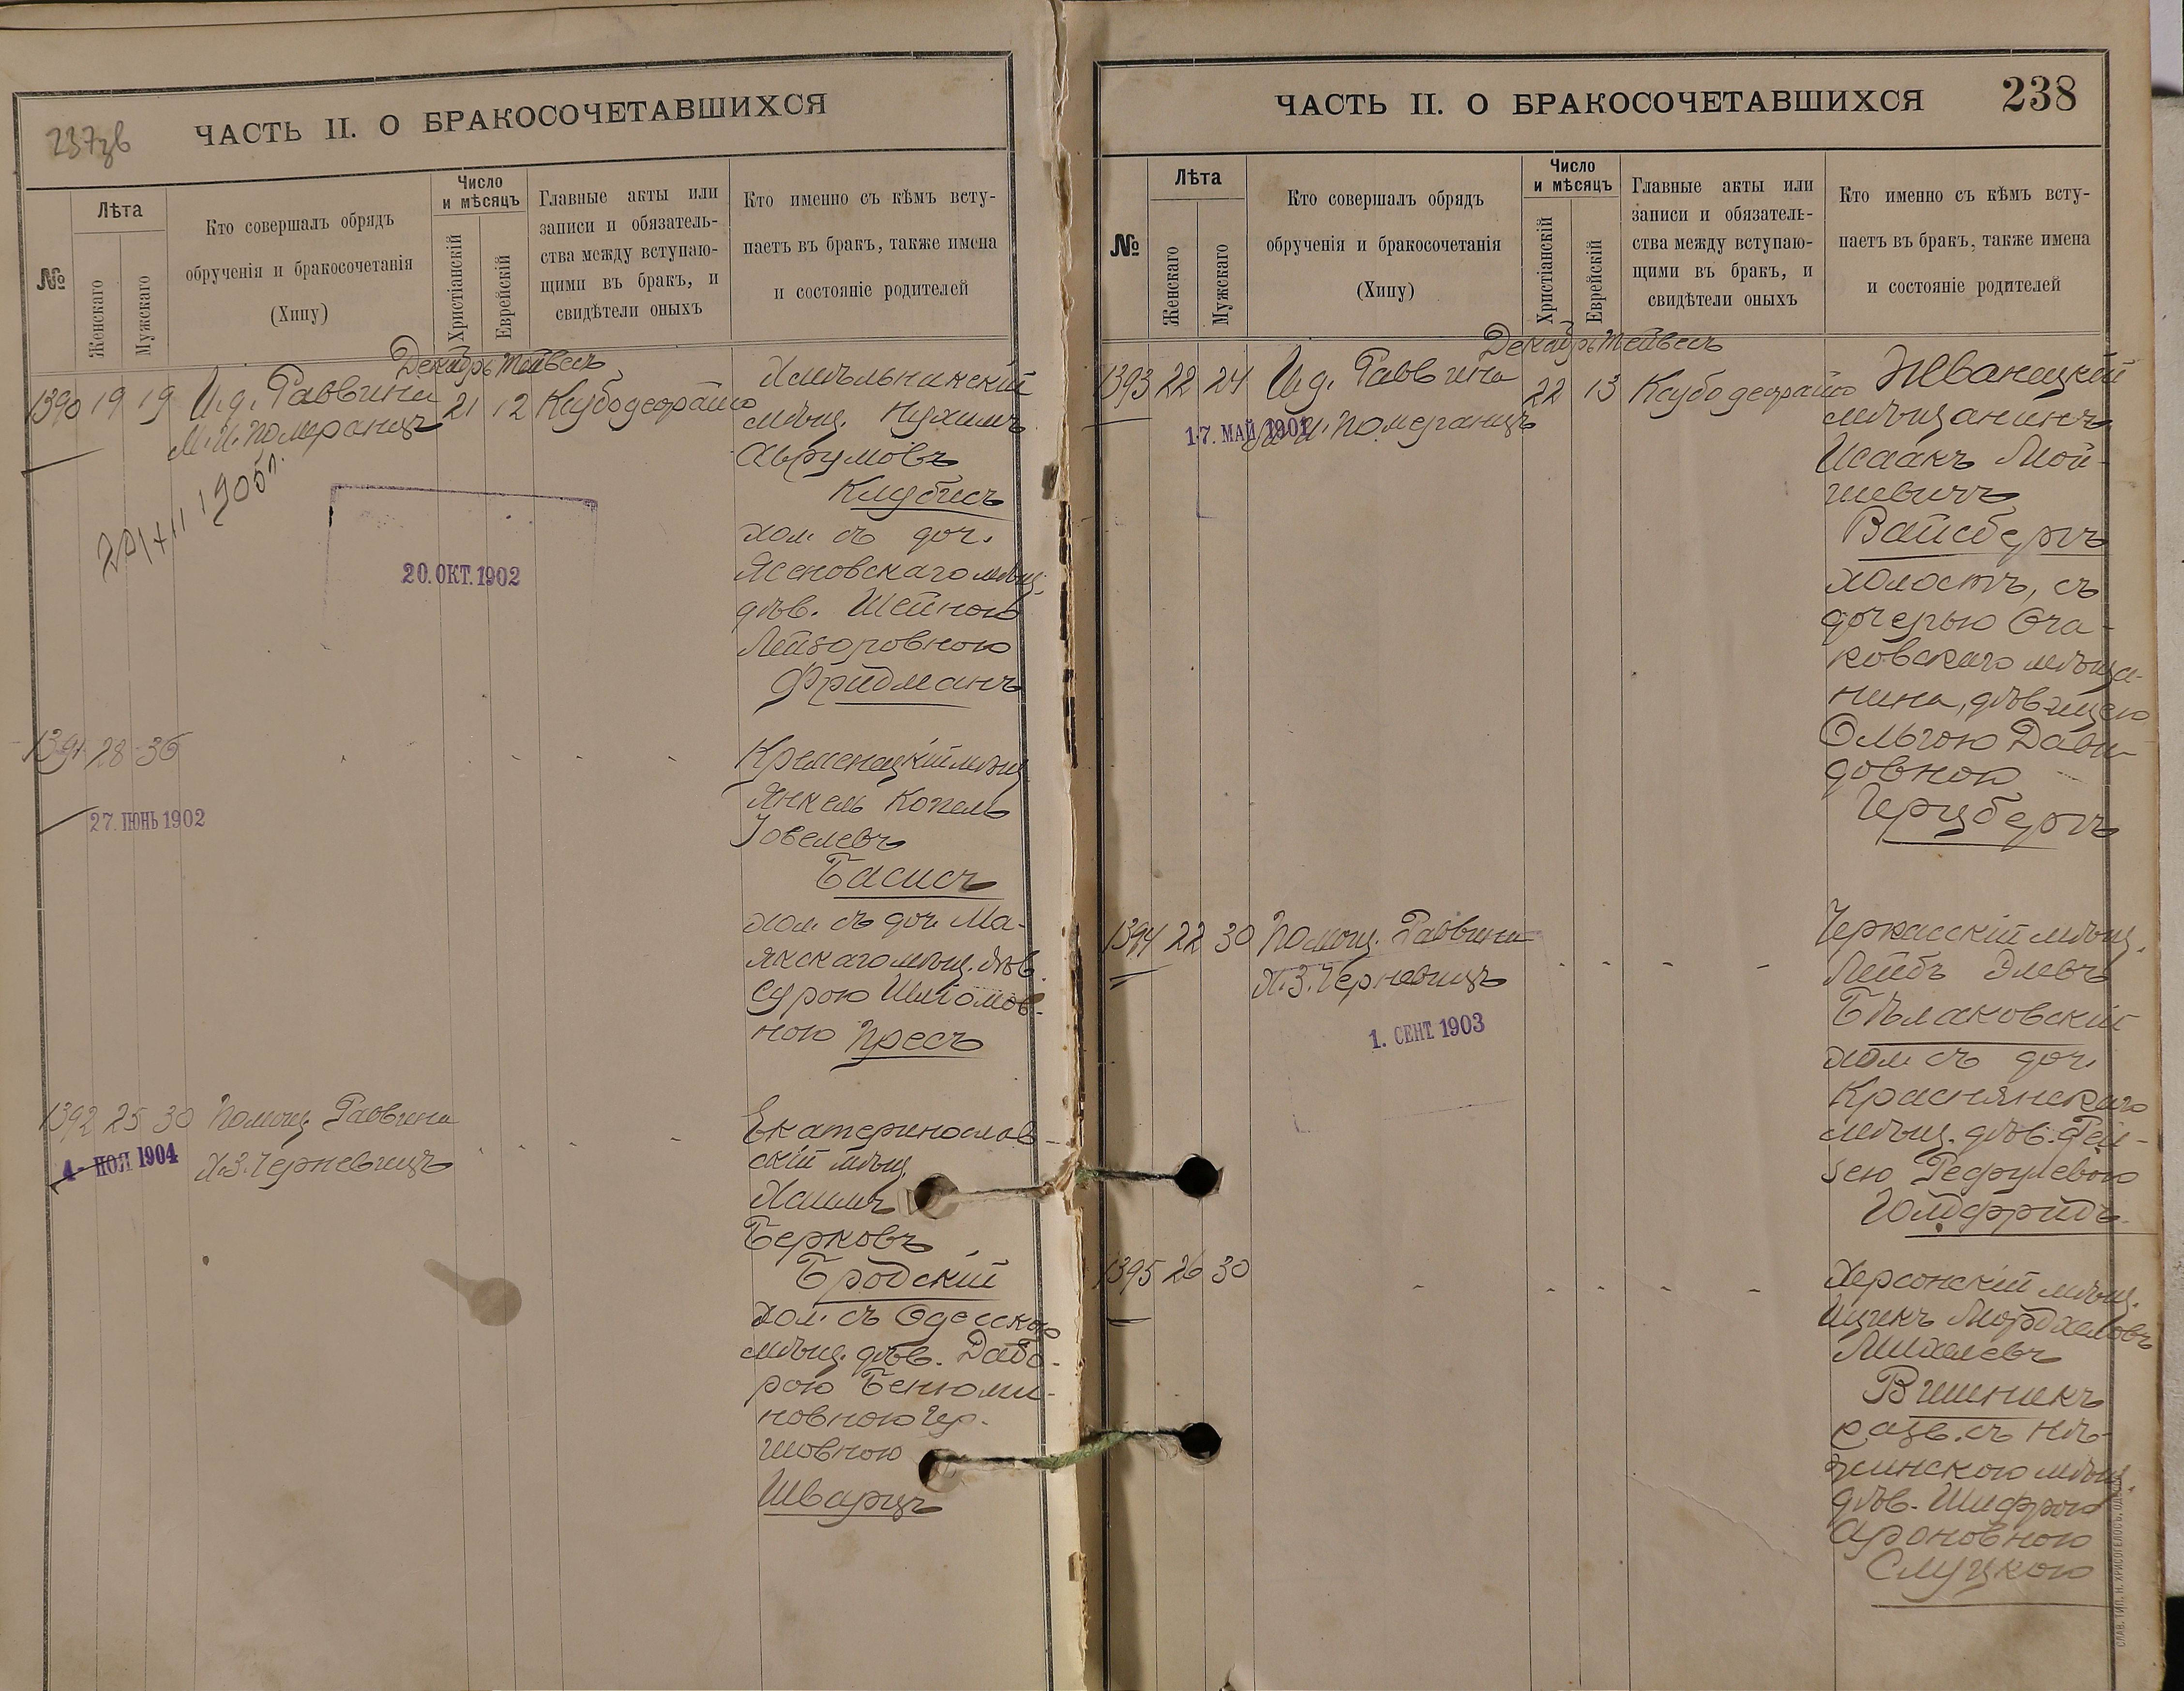 237зв
ЧАСТЬ II. О БРАКОСОЧЕТАВШИХСЯ
№
Лѣта
Женскаго
Мужскаго
Кто совершалъ обрядъ
обрученія и бракосочетанія
(Хипу)
Число
и мѣсяцъ
Христіанскій
Еврейскій
Главные акты или
записи и обязатель-
ства между вступаю-
щими въ бракъ, и
свидѣтели оныхъ
Кто именно съ кѣмъ всту-
паетъ въ бракъ, также имена
и состояніе родителей
Декабрь Тейвесъ
1390 19 19 И.д. Раввина 21 12
М.И. Померанцъ
1905
20. ОКТ. 1902
Хмѣльникскій
мѣщ. Нухимъ
Аврумовъ
Клубисъ
хол. съ доч.
Ясеновскаго мѣщ.
дѣв. Шейною
Лейзоровною
Фридманъ
1391 28 36
27. ІЮНЬ 1902
Кременецкій мѣщ
Янкель Копель
Іовелевъ
Басисъ
хол. съ доч. Ма-
якскаго мѣщ. дѣв.
Сурою Шломов-
ною Пресъ
1392 25 30 Помощ. Раввина
Х.З. Черневицъ
4- НОЯ 1904
Екатеринослав-
скій мѣщ.
Хаимъ
Берковъ
Бродскій
хол. съ Одесскою
мѣщ. дѣв. Дво-
рою Бенюми-
новною Гер-
шовною
Шварцъ
ЧАСТЬ II. О БРАКОСОЧЕТАВШИХСЯ
238
№
Лѣта
Женскаго
Мужскаго
Кто совершалъ обрядъ
обрученія и бракосочетанія
(Хипу)
Число
и мѣсяцъ
Христіанскій
Еврейскій
Главные акты или
записи и обязатель-
ства между вступаю-
щими въ бракъ, и
свидѣтели оныхъ
Кто именно съ кѣмъ всту-
паетъ въ бракъ, также имена
и состояніе родителей
Декабрь Тейвесъ
1393 22 24 И.д. Раввина 22 13
М.И. Померанцъ
17. МАЙ 1901
Жванецкій
мѣщанинъ
Исаакъ Мой-
шевичъ
Вайсбергъ
холостъ, съ
дочерью Оча-
ковскаго мѣща-
нина, дѣвицею
Ольгою Дави-
довною
Герцбергъ
1394 22 30 Помощ. Раввина
Х.З. Черневицъ
1. СЕНТ. 1903
Черкасскій мѣщ.
Лейбъ Элевъ
Бѣлаковскій
хол. съ доч.
Краснянскаго
мѣщ. дѣв. Рей-
зею
Юдфридъ
1395 26 30
Херсонскій мѣщ.
Ицикъ Мордхелевъ
Михелевъ
Вишникъ
разв. съ Нѣ-
жинскою мѣщ.
дѣв. Шифрою
Ароновною
Слуцкою
СЛАВ. ТИП. Н. ХРИСОГЕЛОСЪ, ОДЕССА